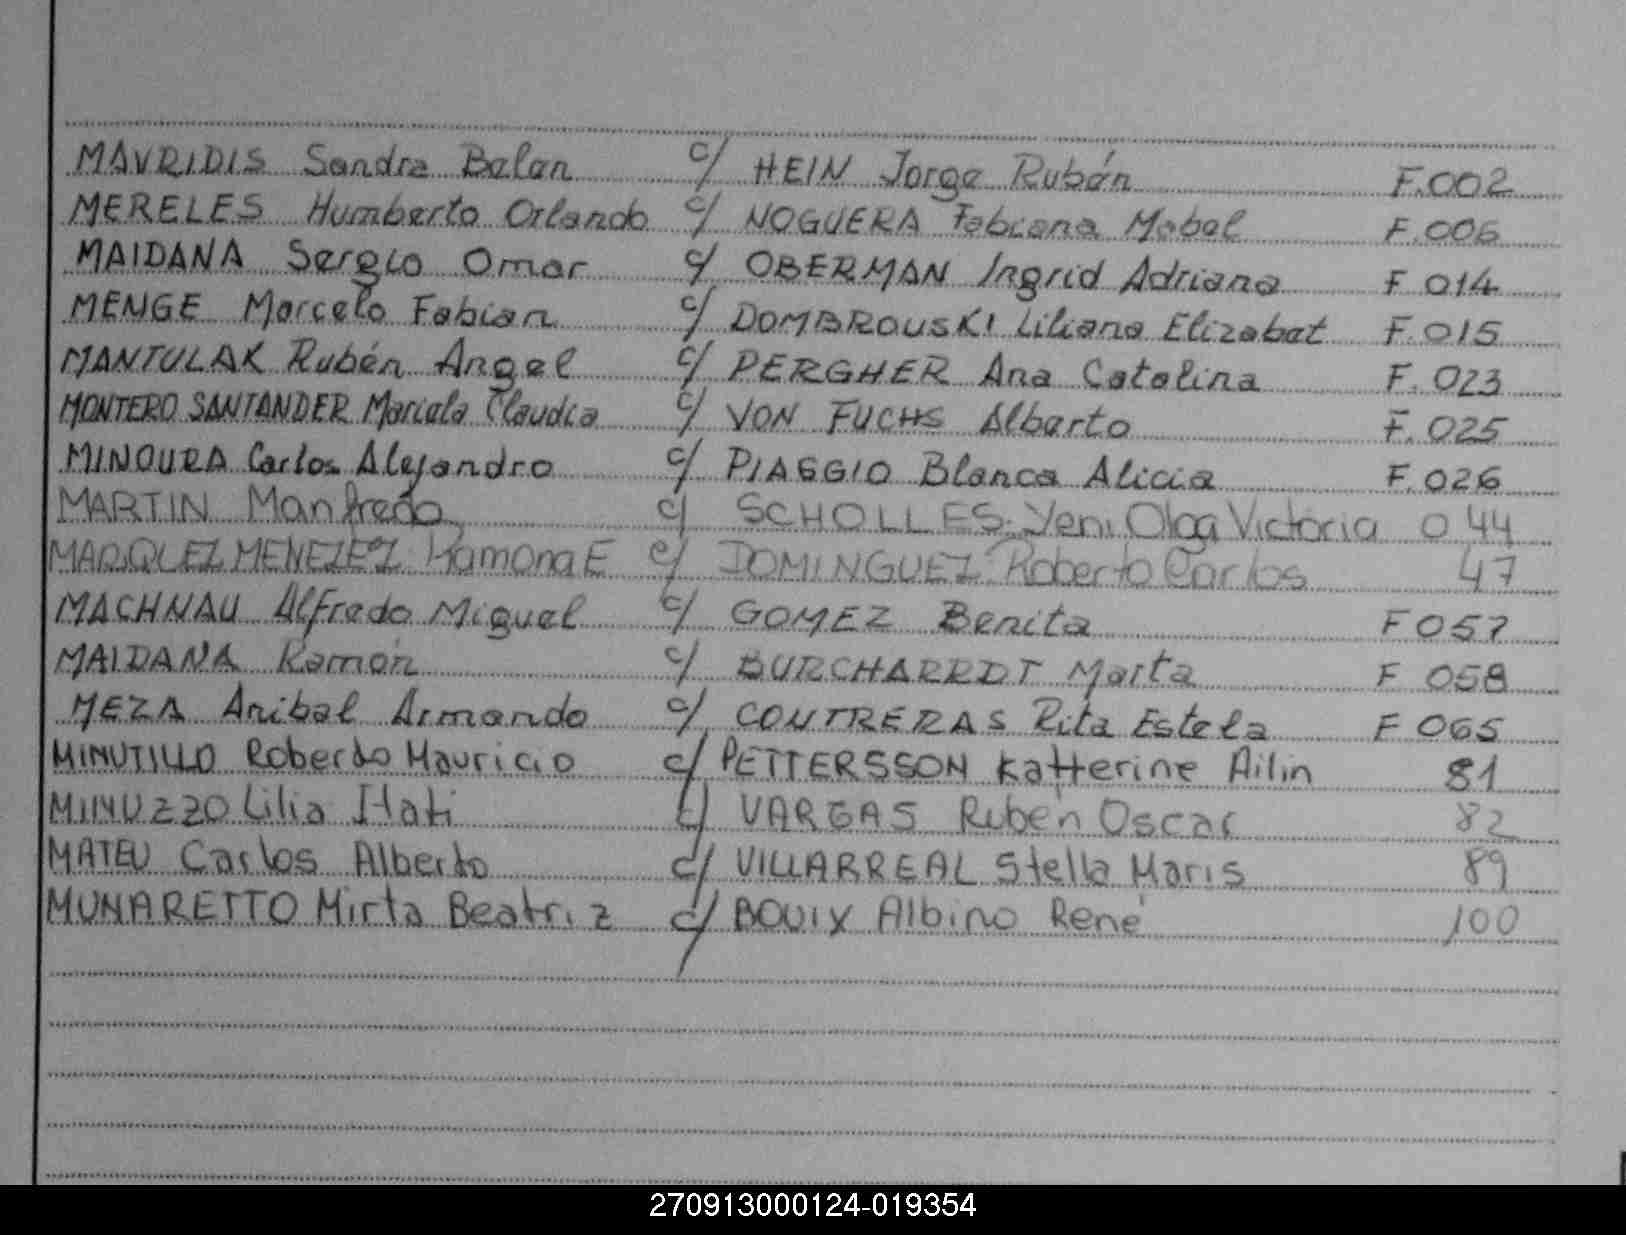 MAVRIDIS Sandra Belan c/ HEIN Jorge Rubén F.002
MERELES Humberto Orlando c/ NOGUERA Fabiana Mabel F.006
MAIDANA Sergio Omar c/ OBERMAN Ingrid Adriana F 014
MENGE Marcelo Fabian c/ DOMBROUSKI Liliana Elizabat F.015
MANTULAK Rubén Angel c/ PERGHER Ana Catalina F. 023
MONTERO SANTANDER Mariela Claudia c/ VON FUCHS Alberto F. 025
MINOURA Carlos Alejandro c/ PIAGGIO Blanca Alicia F. 026
MARTIN Manfredo c/ SCHOLLES Yeni Olga Victoria 044
MARQUEZ MENEZEZ Ramona E c/ DOMINGUEZ Roberto Carlos 47
MACHNAU Alfredo Miguel c/ GOMEZ Benita F 057
MAIDANA Ramón c/ BURCHARRDT Marta F 058
MEZA Anibal Armando c/ CONTRERAS Rita Estela F 065
MINUTILLO Roberto Mauricio c/ PETTERSSON Katterine Ailin 81
MINUZZO Lilia Itati c/ VARGAS Rubén Oscar 82
MATEU Carlos Alberto c/ VILLARREAL Stella Maris 89
MUNARETTO Mirta Beatriz c/ BOUIX Albino René 100
270913000124-019354